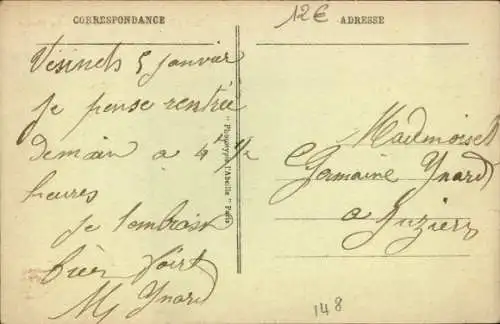 CORRESPONDANCE
12€
ADRESSE
5 janvier
Je pense rentrée
Demain a 4h 1/2
heures
Je t'embrasse
bien fort
M Ynard
" Phototypie l'Abeille " Paris
Mademoiselle
Germaine Ynard
a
148